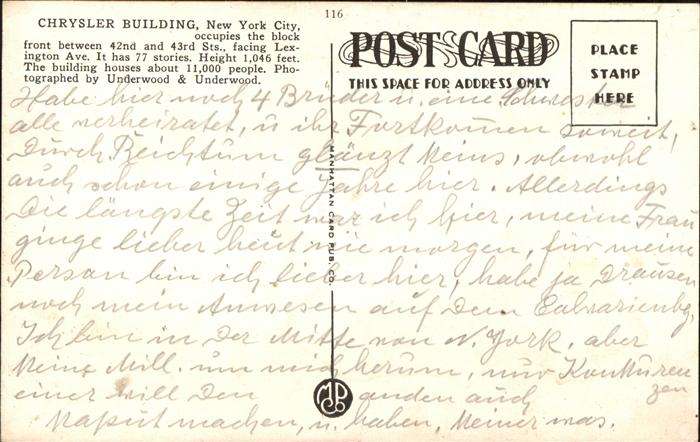 116
CHRYSLER BUILDING, New York City,
occupies the block
front between 42nd and 43rd Sts., facing Lex-
ington Ave. It has 77 stories. Height 1,046 feet.
The building houses about 11,000 people. Pho-
tographed by Underwood & Underwood.
POST CARD
THIS SPACE FOR ADDRESS ONLY
PLACE
STAMP
HERE
Habe hier noch 4 Brüder u. eine Schwester
alle verheiratet, u ihr Fortkomen soweit,
Durch Reichtum glänzt keins, obwohl
auch schon einige Jahre hier. Allerdings
Die längste Zeit war ich hier, meine Frau
ginge lieber heut wie morgen, für meine
Person bin ich lieber hier, habe ja Drausen
noch mein Anwesen auf dem
Ich bin in Der Mitte von N. York, aber
keine Mill. um mich herum, nur Konkuren
zen
einer will Den anden auch
kaput machen, u. haben, keiner was.
MANHATTAN CARD PUB. CO.